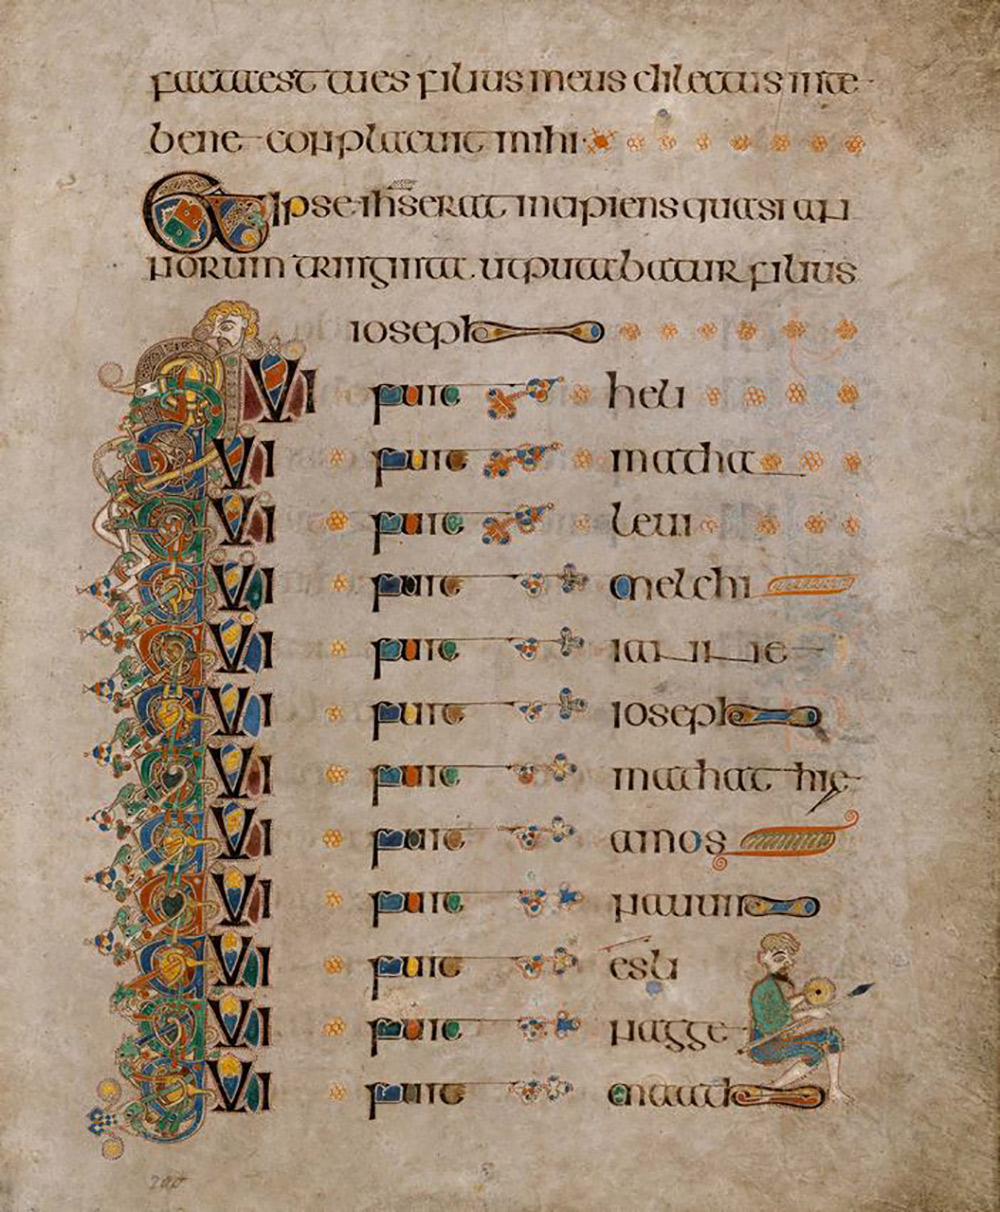 facta est tu es filius meus dilectus in te
bene conplacuit mihi
Et ipse ihs erat incipiens quasi an
norum tringinta ut putabatur filius
ioseph
QUI fuit heli
QUI fuit matha
QUI fuit leui
QUI fuit melchi
QUI fuit ianne
QUI fuit ioseph
QUI fuit mathathie
QUI fuit amos
QUI fuit nauum
QUI fuit esli
QUI fuit nagge
QUI fuit maath
200